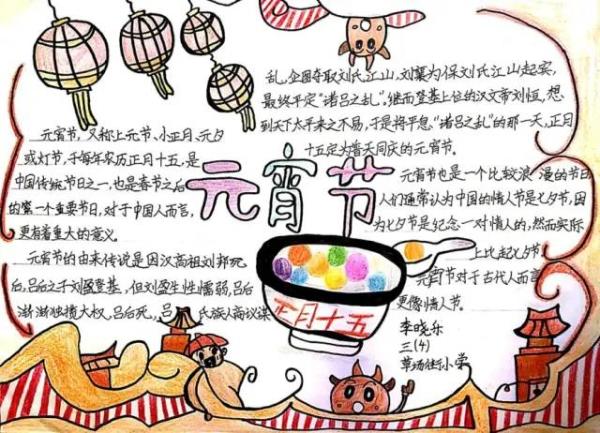 元宵节，又称上元节、小正月、元夕
或灯节，于每年农历正月十五，是
中国传统节日之一，也是春节之后
的第一个重要节日，对于中国人而言，
更有着重大的意义。
元宵节的由来传说是因汉高祖刘邦死
后，吕后之子刘盈登基，但刘盈生性懦弱，吕后
渐渐独揽大权，吕后死，吕氏族人商议谋
元宵节
正月十五
乱，企图夺取刘氏江山，刘襄为保刘氏江山起实，
最终平定“诸吕之乱”。继而登基上位的汉文帝刘恒，想
到天下太平来之不易，于是将平息“诸吕之乱”的那一天，正月
十五定为普天同庆的元宵节。
元宵节也是一个比较浪漫的节日
人们通常认为中国的情人节是七夕节，因
为七夕节是纪念一对情人的，然而实际
上比起七夕节
元宵节对于古代人而言
更像情人节。
李晓乐
三(4)
草场街小学